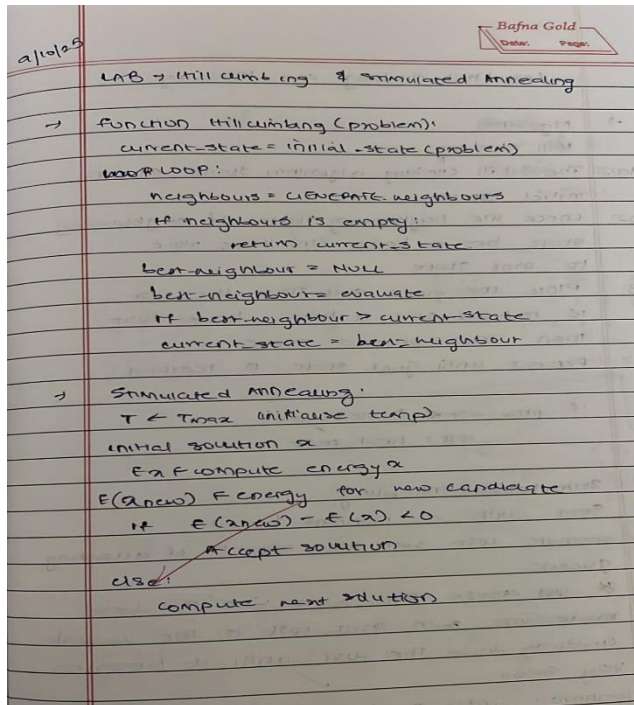 Bafna Gold
Date: Page:
9/10/25
LAB → Hill climbing & Stimulated Annealing
→ function Hill climbing (problem):
current-state = initial-state (problem)
LOOP:
neighbours = GENERATE neighbours
If neighbours is empty:
return current-state
best-neighbour = NULL
best-neighbour = evaluate
If best-neighbour > current-state
current-state = best-neighbour
→ Stimulated Annealing:
T ← Tmax (initialise temp)
initial solution x
Ex ← compute energy x
E(xnew) ← energy for new candidate
if E(xnew) - E(x) < 0
Accept solution
else:
compute next solution